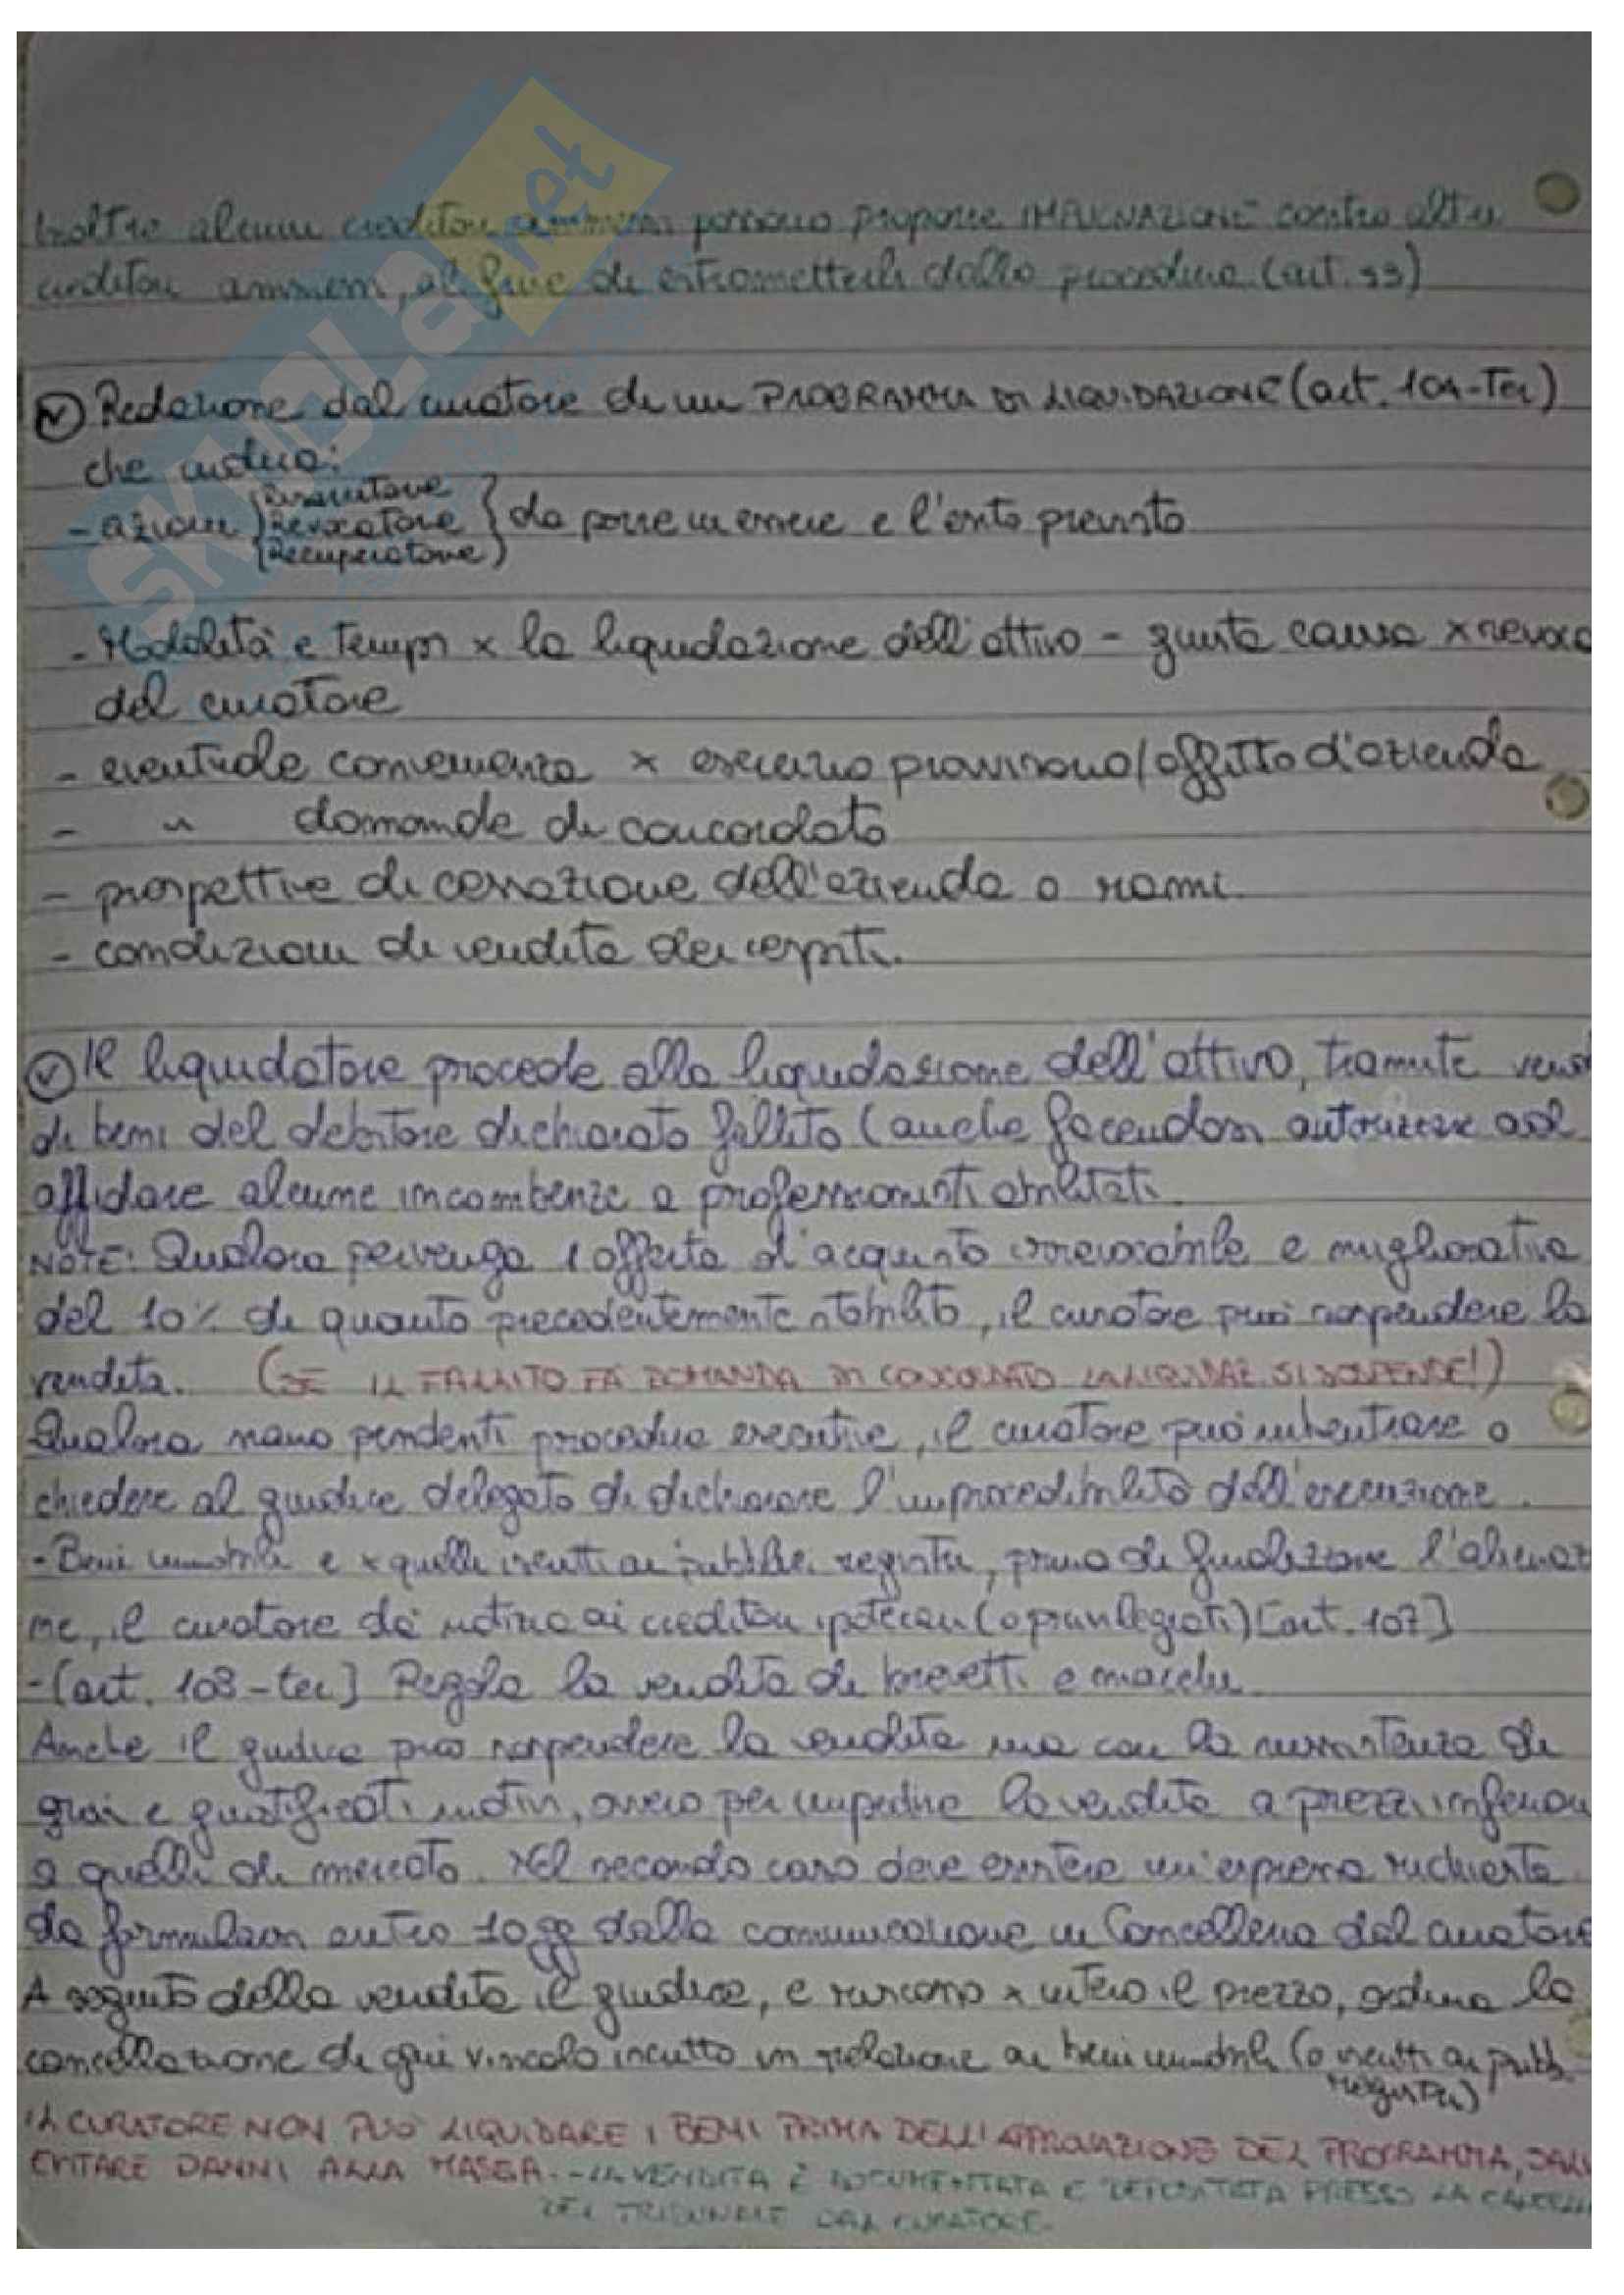 SKUOLA.net
Inoltre alcuni creditori ammessi possono proporre IMPUGNAZIONE contro altri
creditori ammessi, al fine di estrometterli dalla procedura (art. 99)
Redazione dal curatore di un PROGRAMMA DI LIQUIDAZIONE (art. 104-Ter)
che indica:
- azioni { Risarcitorie
Revocatorie
Recuperatorie } da porre in essere e l'esito previsto
- Modalità e tempi x la liquidazione dell'attivo - giusta causa x revoca
del curatore
- eventuale convenienza x esercizio provvisorio/affitto d'azienda
- " domande di concordato
- prospettive di cessazione dell'azienda o rami.
- condizioni di vendita dei cespiti.
Il liquidatore procede alla liquidazione dell'attivo, tramite vend
di beni del debitore dichiarato fallito (anche facendosi autorizzare ad
affidare alcune incombenze a professionisti abilitati.
NOTE: Qualora pervenga 1 offerta d'acquisto irrevocabile e migliorativa
del 10% di quanto precedentemente stabilito, il curatore può sospendere la
vendita. (SE IL FALLITO FA DOMANDA DI CONCORDATO LA LIQUIDAZ. SI SOSPENDE!)
Qualora siano pendenti procedure esecutive, il curatore può subentrare o
chiedere al giudice delegato di dichiarare l'improcedibilità dell'esecuzione.
- Beni immobili e x quelli iscritti ai pubblici registri, prima di finalizzare l'alienaz
ne, il curatore dà notizia ai creditori ipotecari (o privilegiati) [art. 107]
- [art. 108-ter] Regola la vendita di brevetti e marchi.
Anche il giudice può sospendere la vendita ma con la sussistenza di
gravi e giustificati motivi, ovvero per impedire la vendita a prezzi inferiori
a quelli di mercato. Nel secondo caso deve esistere un'espressa richiesta
da formularsi entro 10 gg dalla comunicazione in Cancelleria dal curatore
A seguito della vendita il giudice, e riscosso x intero il prezzo, ordina la
cancellazione di ogni vincolo iscritto in relazione ai beni immobili (o iscritti ai pubb.
registri)
IL CURATORE NON PUÒ LIQUIDARE I BENI PRIMA DELL'APPROVAZIONE DEL PROGRAMMA,
EVITARE DANNI ALLA MASSA. - LA VENDITA È DOCUMENTATA E DEPOSITATA PRESSO LA CANCELL
DEL TRIBUNALE DAL CURATORE.